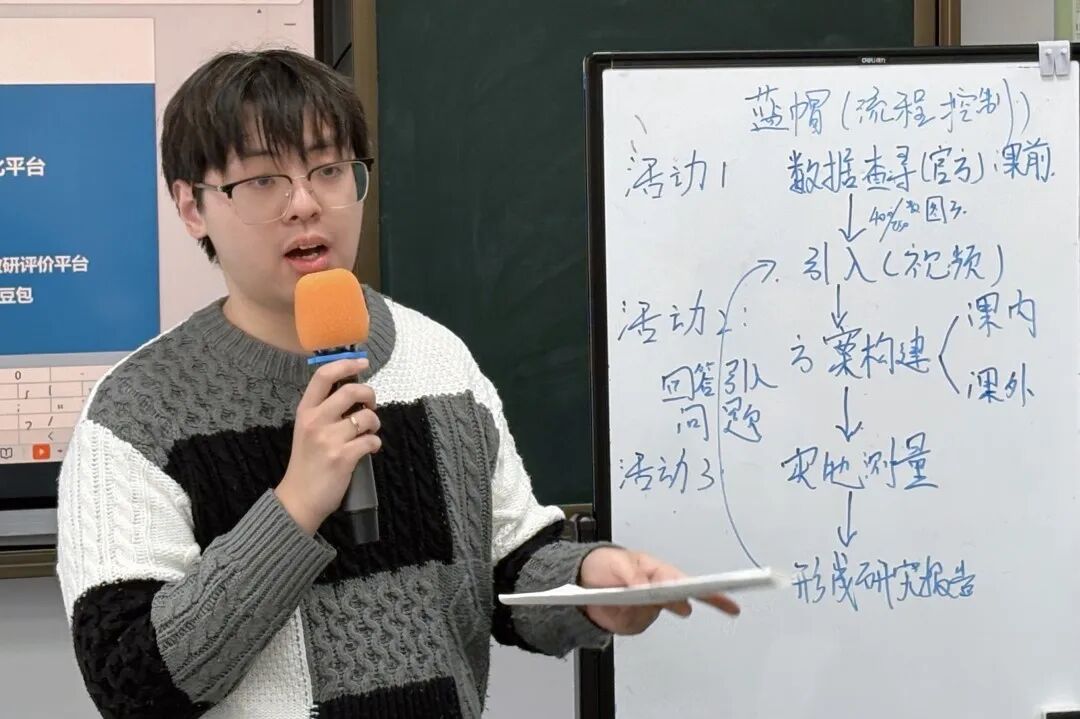 化平台
教研评价平台
豆包
deli得力
蓝帽(流程控制)
活动1 数据查寻(官方)课前
图
引入(视频)
活动2:
方案构建
课内
课外
回答引入
问题
活动3
实地测量
形成研究报告